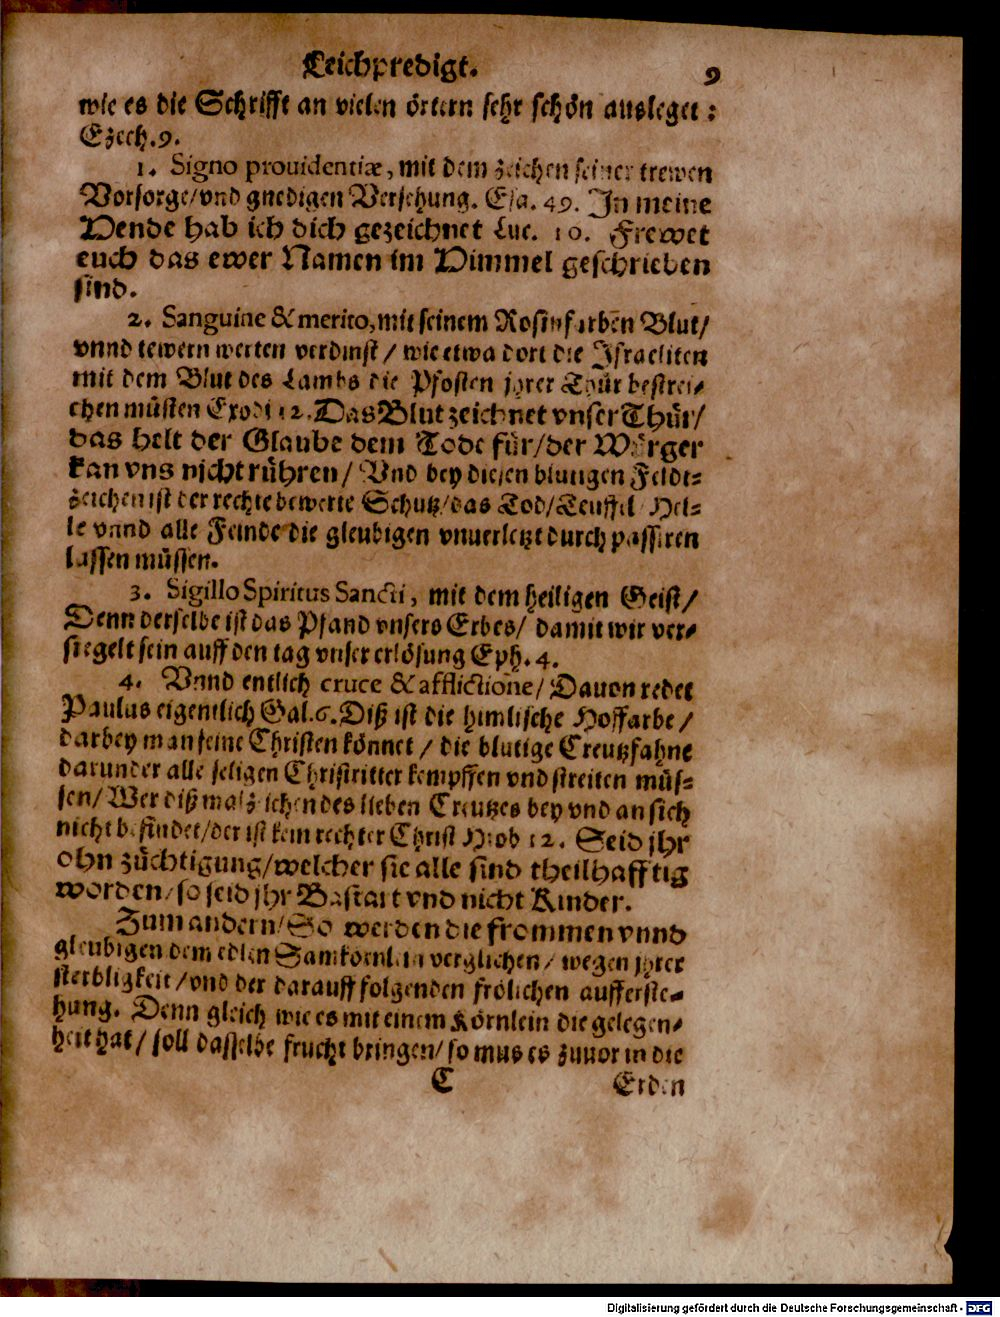 Leichpredigt. 9
wie es die Schrifft an vielen örtern sehr schön ausleget:
Ezech.9.
1. Signo prouidentiæ, mit dem zeichen seiner trewen
Vorsorge/vnd gnedigen Versehung. Esa. 49. In meine
Hende hab ich dich gezeichnet Luc. 10. Frewet
euch das ewer Namen im Himmel geschrieben
sind.
2. Sanguine & merito, mit seinem Rosinfarben Blut/
vnnd tewern werten verdinst / wie etwa dort die Israeliten
mit dem Blut des Lambs die Pfosten jhrer Thür bestrei-
chen müsten Exodi 12. Das Blut zeichnet vnser Thür/
das helt der Glaube dem Tode für/der Würger
kan vns nicht rühren/ Vnd bey diesen blutigen Feldt-
zeichen ist der rechte bewerte Schutz/das Tod/Teuffel/Hel-
le vnnd alle Feinde die gleubigen vnuerletzt durch passiren
lassen müssen.
3. Sigillo Spiritus Sancti, mit dem heiligen Geist/
Denn derselbe ist das Pfand vnsers Erbes/ damit wir ver-
siegelt sein auff den tag vnser erlösung Eph. 4.
4. Vnnd entlich cruce & afflictione/ Dauon redet
Paulus eigentlich Gal.6. Diß ist die himlische Hoffarbe/
darbey man seine Christen könnet / die blutige Creutzfahne
darunder alle seligen Christritter kempffen vnd streiten müs-
sen/ Wer diß malzeichen des lieben Creutzes bey vnd an sich
nicht befindet/der ist kein rechter Christ Heob 12. Seid jhr
ohn züchtigung/welcher sie alle sind theilhafftig
worden/so seid jhr Bastart vnd nicht Kinder.
Zum andern/ So werden die frommen vnnd
gleubigen dem edlen Samkörnlein verglichen/ wegen jhrer
sterbligkeit/vnd der darauff folgenden frölichen aufferste-
hung. Denn gleich wie es mit einem Körnlein die gelegen-
heit hat/ soll dasselbe frucht bringen/ so mus es zuuor in die
C Erden
Digitalisierung gefördert durch die Deutsche Forschungsgemeinschaft - DFG